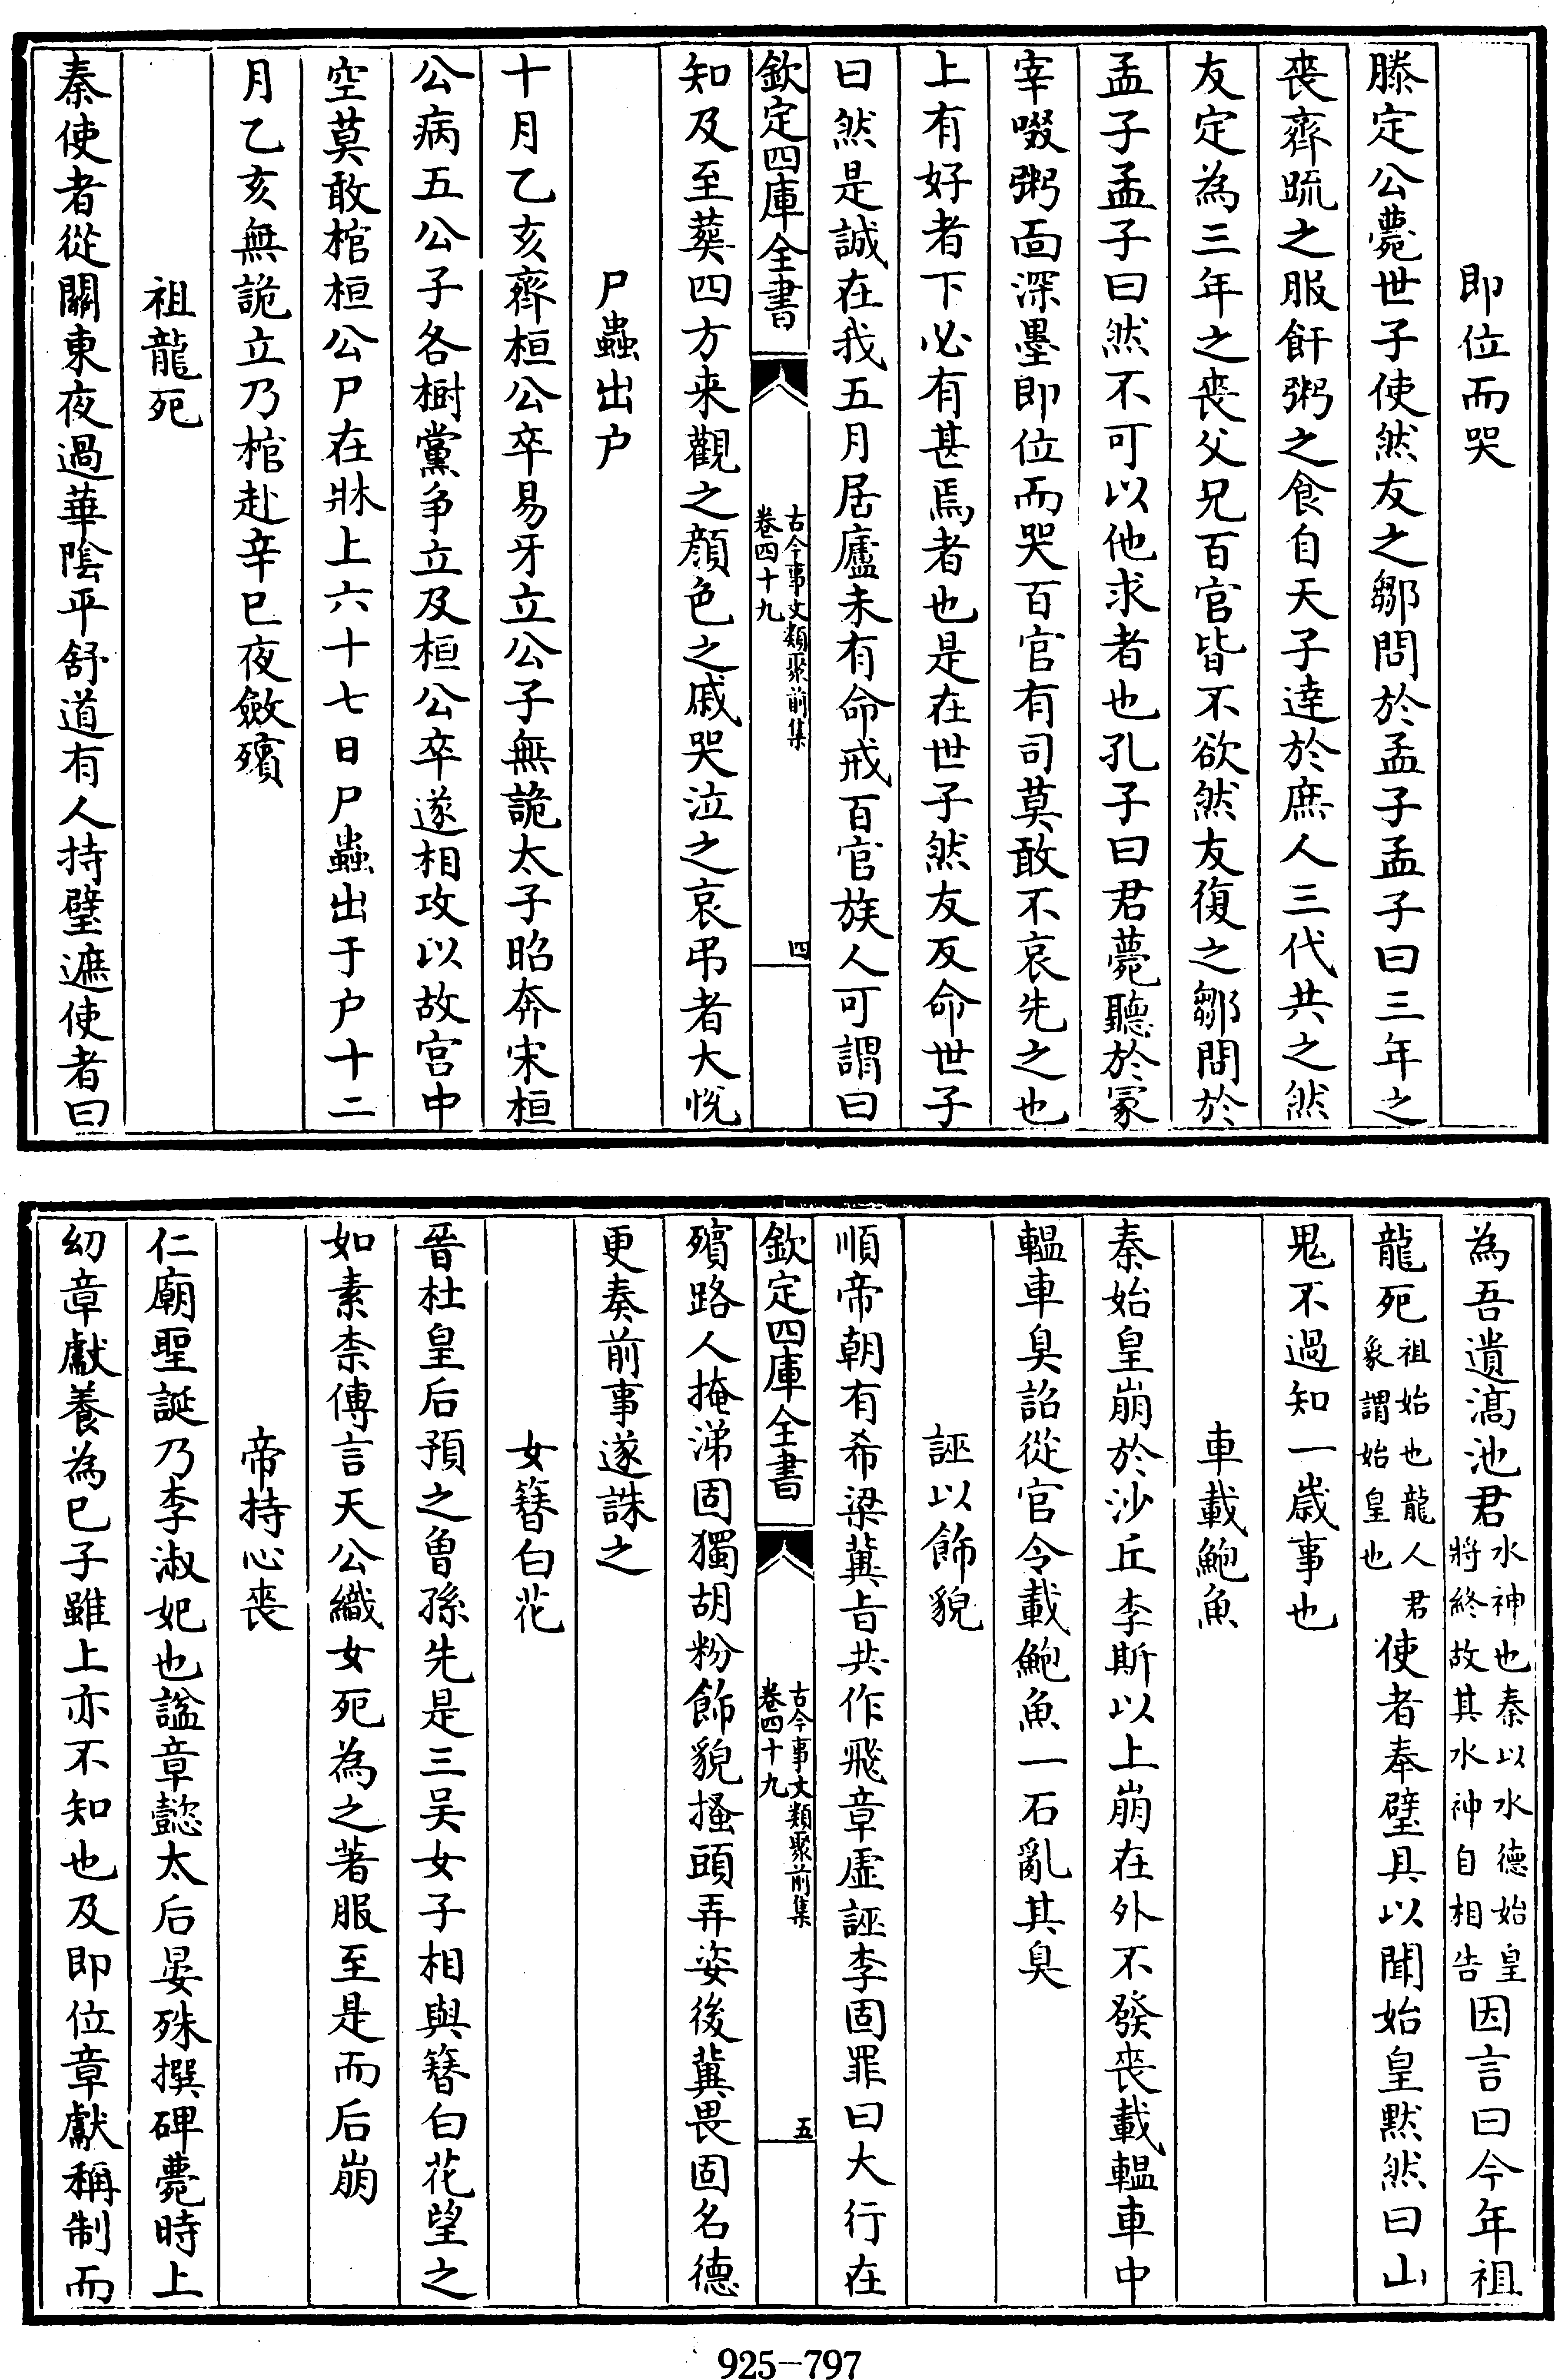 即位而哭
滕定公薨世子使然友之鄒問於孟子孟子曰三年之
喪齊疏之服飦粥之食自天子達於庶人三代共之然
友定為三年之喪父兄百官皆不欲然友復之鄒問於
孟子孟子曰然不可以他求者也孔子曰君薨聽於冢
宰啜粥面深墨即位而哭百官有司莫敢不哀先之也
上有好者下必有甚焉者也是在世子然友反命世子
曰然是誠在我五月居廬未有命戒百官族人可謂曰
欽定四庫全書
古今事文類聚前集
卷四十九
四
知及至葬四方来觀之顔色之戚哭泣之哀弔者大悦
尸蟲出户
十月乙亥齊桓公卒易牙立公子無詭太子昭奔宋桓
公病五公子各樹黨爭立及桓公卒遂相攻以故宫中
空莫敢棺桓公尸在牀上六十七日尸蟲出于户十二
月乙亥無詭立乃棺赴辛巳夜斂殯
祖龍死
秦使者從關東夜過華陰平舒道有人持璧遮使者曰
為吾遺滈池君
水神也秦以水德始皇
將終故其水神自相告
因言曰今年祖
龍死
祖始也龍人君
象謂始皇也
使者奉璧具以聞始皇默然曰山
鬼不過知一歳事也
車載鮑魚
秦始皇崩於沙丘李斯以上崩在外不發喪載轀車中
轀車臭詔從官令載鮑魚一石亂其臭
誣以飾貌
順帝朝有希梁冀旨共作飛章虚誣李固罪曰大行在
欽定四庫全書
古今事文類聚前集
卷四十九
五
殯路人掩涕固獨胡粉飾貌搔頭弄姿後冀畏固名德
更奏前事遂誅之
女簪白花
晉杜皇后預之曽孫先是三吴女子相與簪白花望之
如素柰傳言天公織女死為之著服至是而后崩
帝持心喪
仁廟聖誕乃李淑妃也諡章懿太后晏殊撰碑薨時上
幼章獻養為己子雖上亦不知也及即位章獻稱制而
925-797